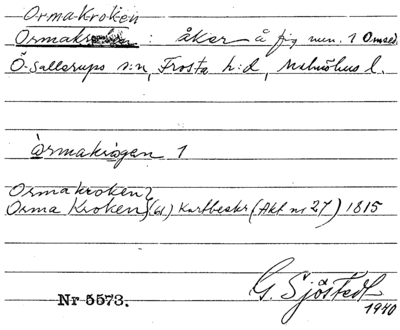 Ormakroken
Ormakroken : åker å fig num. 1 Omsed.
Ö-Sallerups s:n, Frosta h:d, Malmöhus l.
årmakrågen 1
Ormakroken
Orma Kroken (bl) Kartbeskr (Akt nr 27) 1815
G. Sjöstedt
1940
Nr 5573.